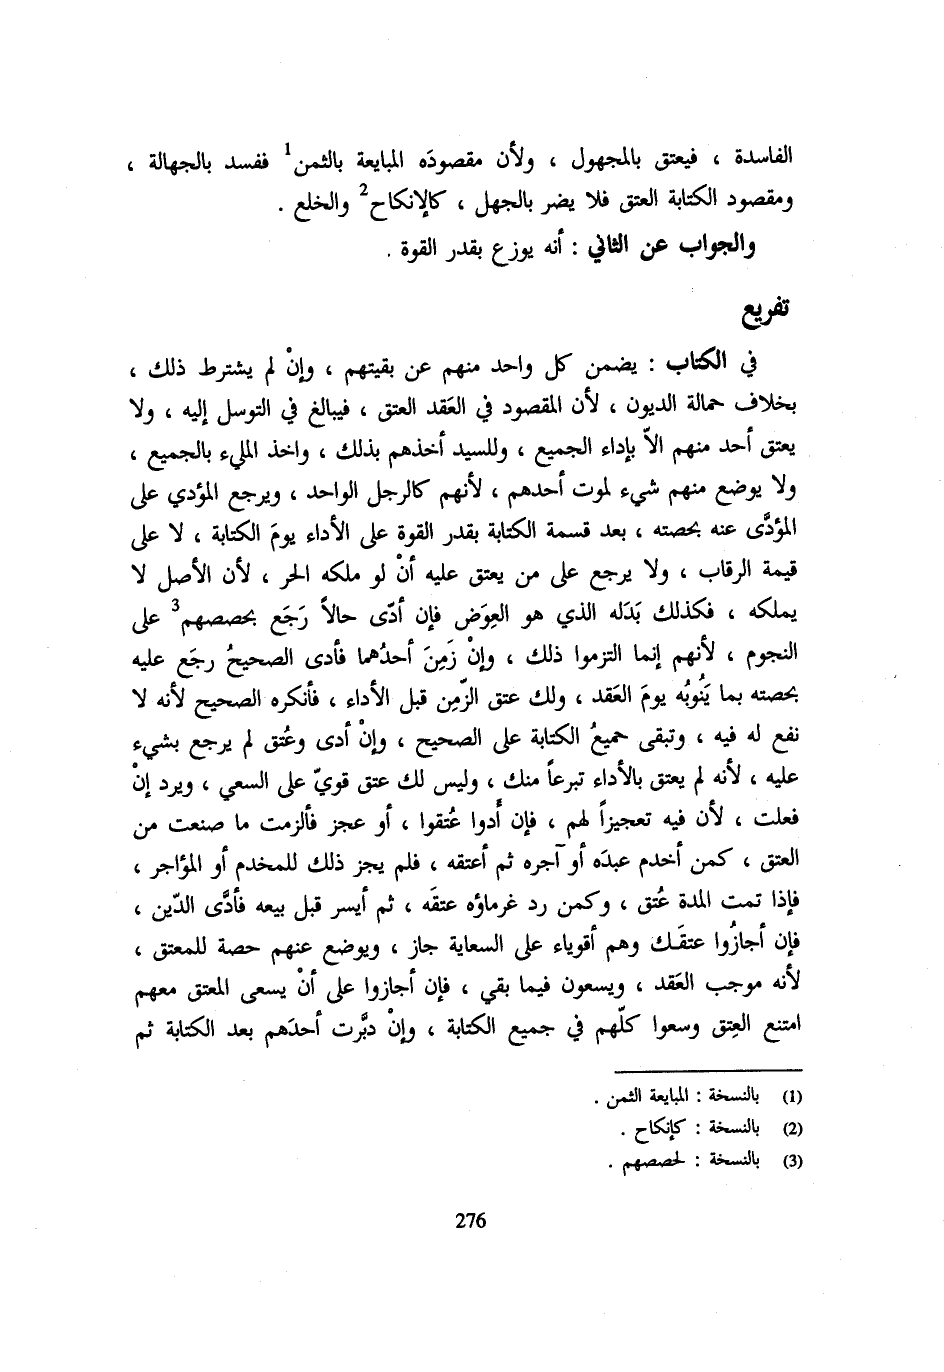 الفاسدة ، فيعتق بالمجهول ، ولأن مقصودَه المبايعة بالثمن1 ففسد بالجهالة ،
ومقصود الكتابة العتق فلا يضر بالجهل ، كالإنكاح2 والخلع .
والجواب عن الثاني : أنه يوزع بقدر القوة .
تفريع
في الكتاب : يضمن كل واحد منهم عن بقيتهم ، وإنْ لم يشترط ذلك ،
بخلاف حمالة الديون ، لأن المقصود في العَقد العتق ، فيبالغ في التوسل إليه ، ولا
يعتق أحد منهم الاّ بإداء الجميع ، وللسيد أخذهم بذلك ، واخذ المليء بالجميع ،
ولا يوضع منهم شيء لموت أحدهم ، لأنهم كالرجل الواحد ، ويرجع المؤدي على
المؤدَّى عنه بحصته ، بعد قسمة الكتابة بقدر القوة على الأداء يومَ الكتابة ، لا على
قيمة الرقاب ، ولا يرجع على من يعتق عليه أنْ لو ملكه الحر ، لأن الأصل لا
يملكه ، فكذلك بَدَله الذي هو العِوَض فإن أدّى حالاً رَجَع بحصصهم3 على
النجوم ، لأنهم إنما التزموا ذلك ، وإنْ زَمِنَ أحدُهما فأدى الصحيحُ رجَع عليه
بحصته بما يَنُوبُه يومَ العَقد ، ولك عتق الزّمِن قبل الأداء ، فأنكره الصحيح لأنه لا
نفع له فيه ، وتبقى جميعُ الكتابة على الصحيح ، وإنْ أدى وعُتق لم يرجع بشيء
عليه ، لأنه لم يعتق بالأداء تبرعاً منك ، وليس لك عتق قويّ على السعي ، ويرد إنْ
فعلت ، لأن فيه تعجيزاً لهم ، فإن أَدوا عُتقوا ، أو عجز فألزمت ما صنعت من
العتق ، كمن أخدم عبدَه أو آجره ثم أعتقه ، فلم يجز ذلك للمخدم أو المؤاجر ،
فإذا تمت المدة عُتق ، وكمن رد غرماؤه عتقَه ، ثم أيسر قبل بيعه فأدَّى الدّين ،
فإن أجازُوا عتقَك وهم أقوياء على السعاية جاز ، ويوضع عنهم حصة للمعتق ،
لأنه موجب العَقد ، ويسعون فيما بقي ، فإن أجازوا على أنْ يسعى المعتق معهم
امتنع العِتق وسعوا كلّهم في جميع الكتابة ، وإنْ دبَّرت أحدَهم بعد الكتابة ثم
(1) بالنسخة : المبايعة الثمن .
(2) بالنسخة : كإنكاح .
(3) بالنسخة : لحصصهم .
276